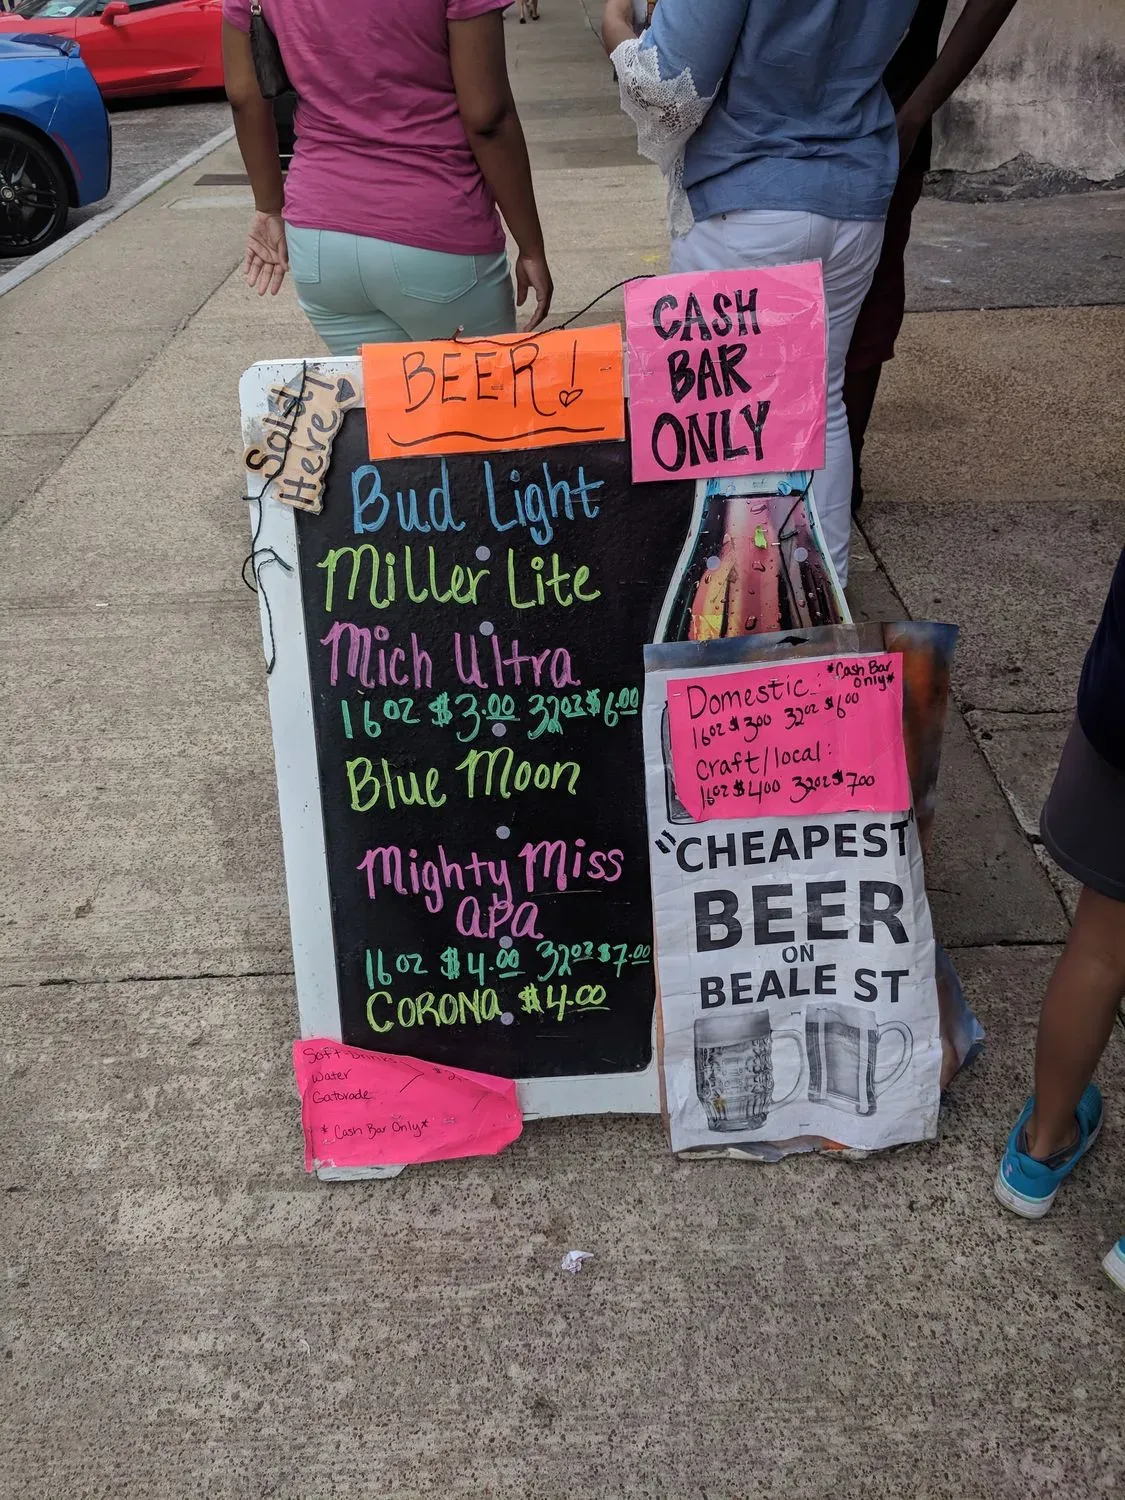 Sold
Here!
BEER!
CASH
BAR
ONLY
Bud Light
Miller Lite
Mich Ultra
16oz $3.00 32oz $6.00
Blue Moon
Mighty Miss
APA
16oz $4.00 32oz $7.00
CORONA $4.00
Soft Drinks
Water
Gatorade
*Cash Bar Only*
*Cash Bar
only*
Domestic:
16oz $3.00 32oz $6.00
Craft/local:
16oz $4.00 32oz $7.00
"CHEAPEST"
BEER
ON
BEALE ST